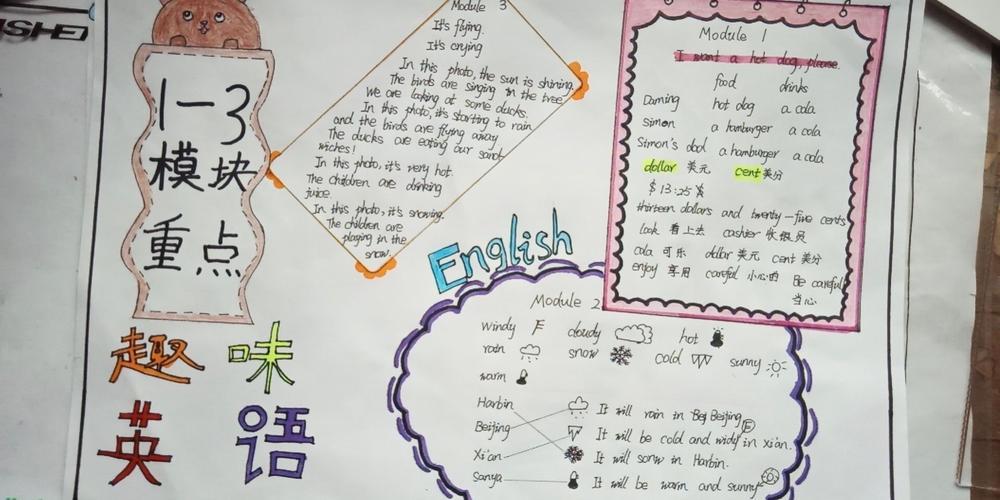 1-3
模块
重点
趣味
英语
Module 3
It's flying.
It's crying
In this photo, the sun is shining.
The birds are singing in the tree
We are looking at some ducks.
In this photo, it's starting to rain
and the birds are flying away
The ducks are eating our sand-
wiches!
In this photo, it's very hot.
The children are drinking
juice.
In this photo, it's snowing.
The children are
playing in the
snow.
English
Module 1
I want a hot dog, please.
food drinks
Daming hot dog a cola
Simon a hamburger a cola
Simon's dad a hamburger a cola
dollar 美元 cent 美分
$ 13:25
thirteen dollars and twenty-five cents
look 看上去 cashier 收银员
cola 可乐 dollar 美元 cent 美分
enjoy 享用 careful 小心的 Be careful
当心
Module 2
windy F cloudy hot
rain snow cold sunny
warm
Harbin
Beijing
Xi'an
Sanya
It will rain in Bej Beijing
It will be cold and widy in Xi'an.
It will sonw in Harbin.
It will be warm and sunny